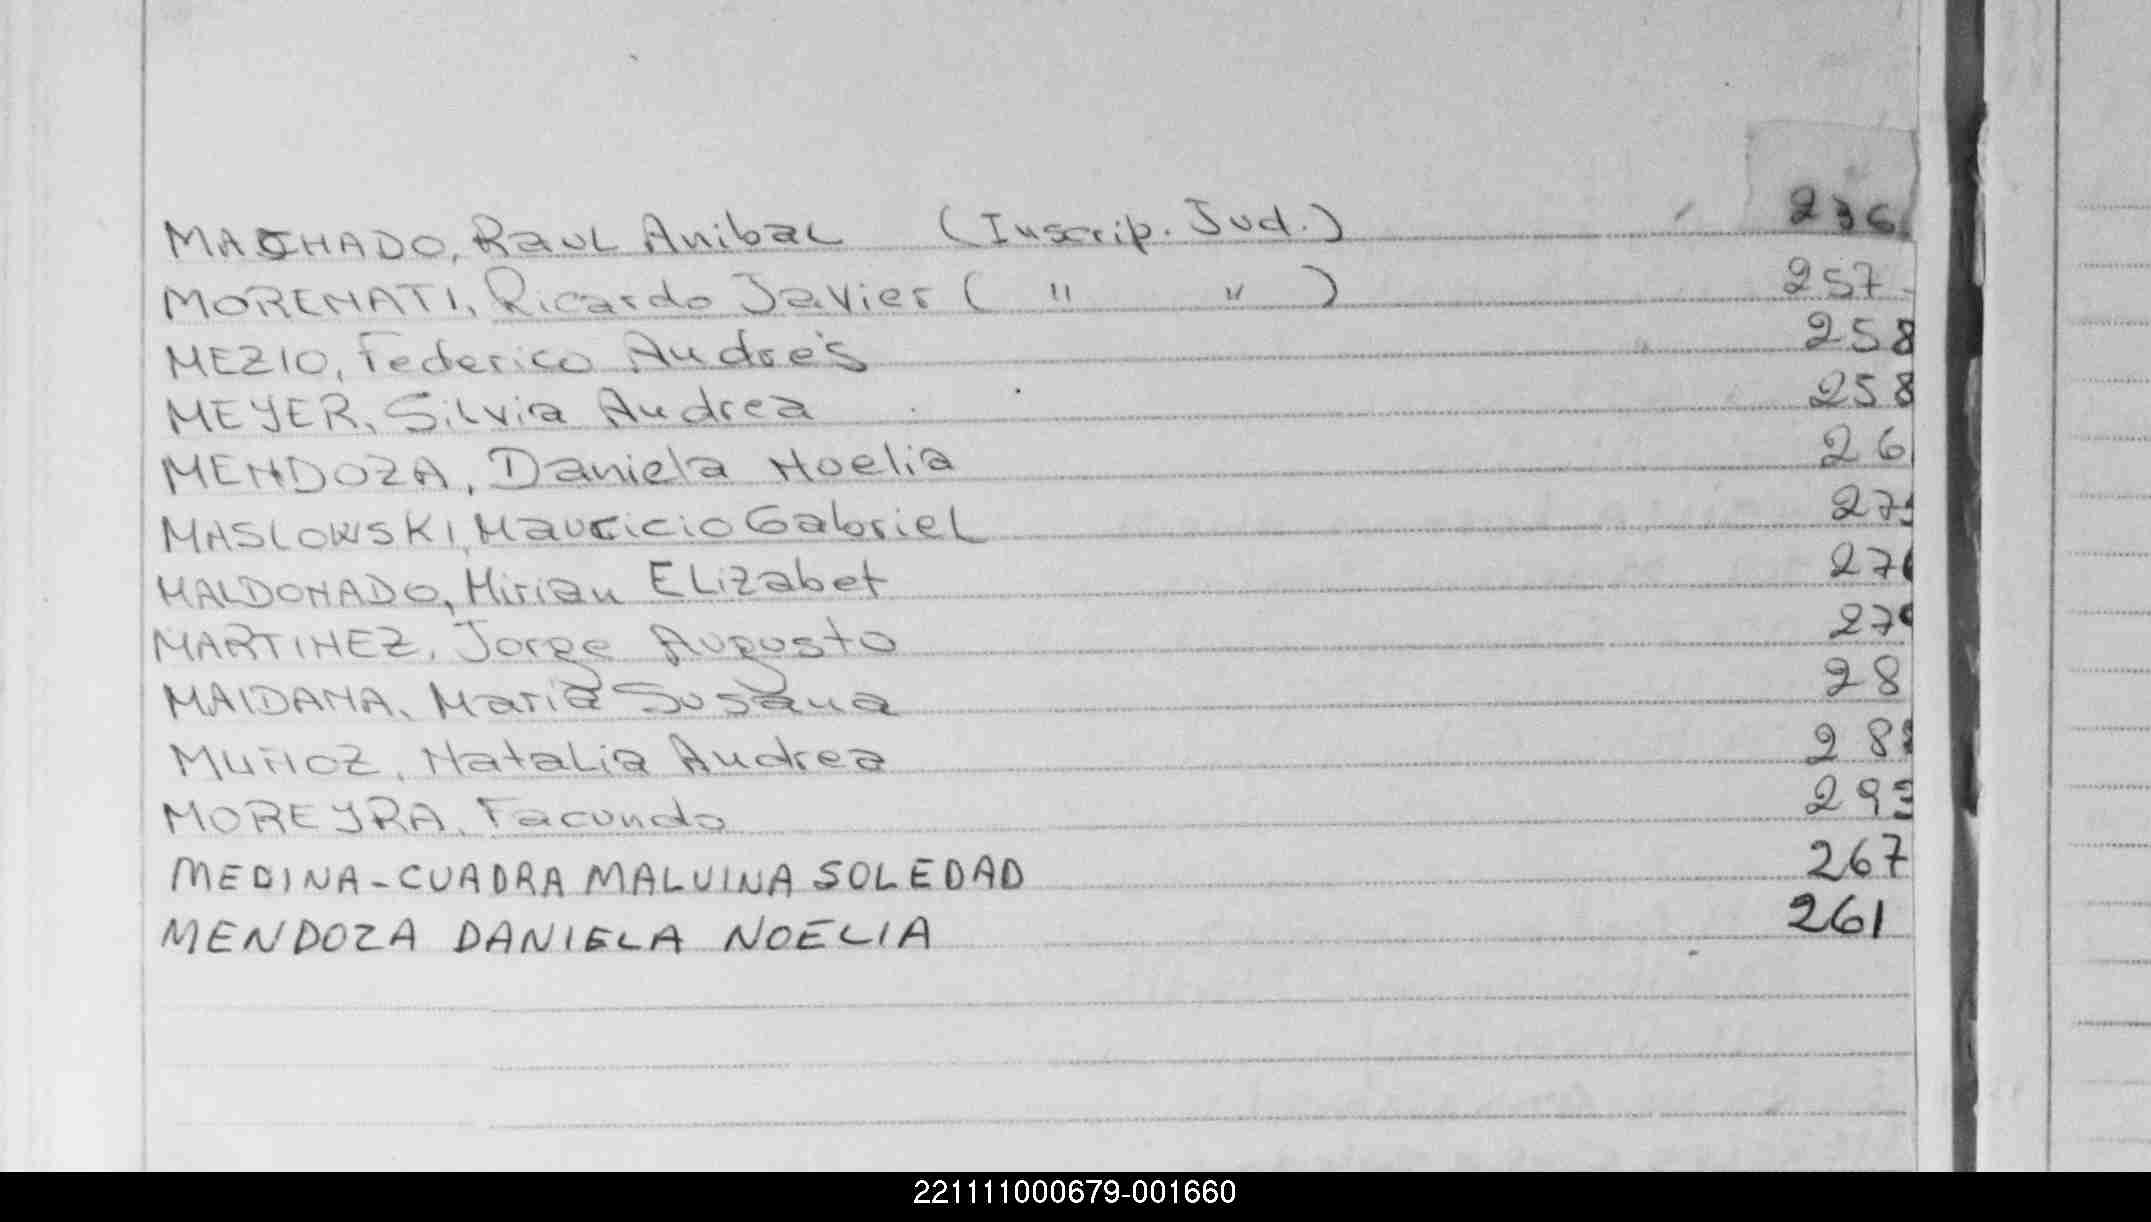 MACHADO, Raul Anibal (Inscrip. Jud.) 236
MORENATI, Ricardo Javier ( " " ) 257
MEZIO, Federico Andrés 258
MEYER, Silvia Andrea 258
MENDOZA, Daniela Noelia 26
MASLOWSKI, Mauricio Gabriel
MALDONADO, Mirian Elizabet
MARTINEZ, Jorge Augusto
MAIDANA, Maria Susana 28
MUÑOZ, Natalia Andrea
MOREYRA, Facundo 293
MEDINA-CUADRA MALVINA SOLEDAD 267
MENDOZA DANIELA NOELIA 261
221111000679-001660